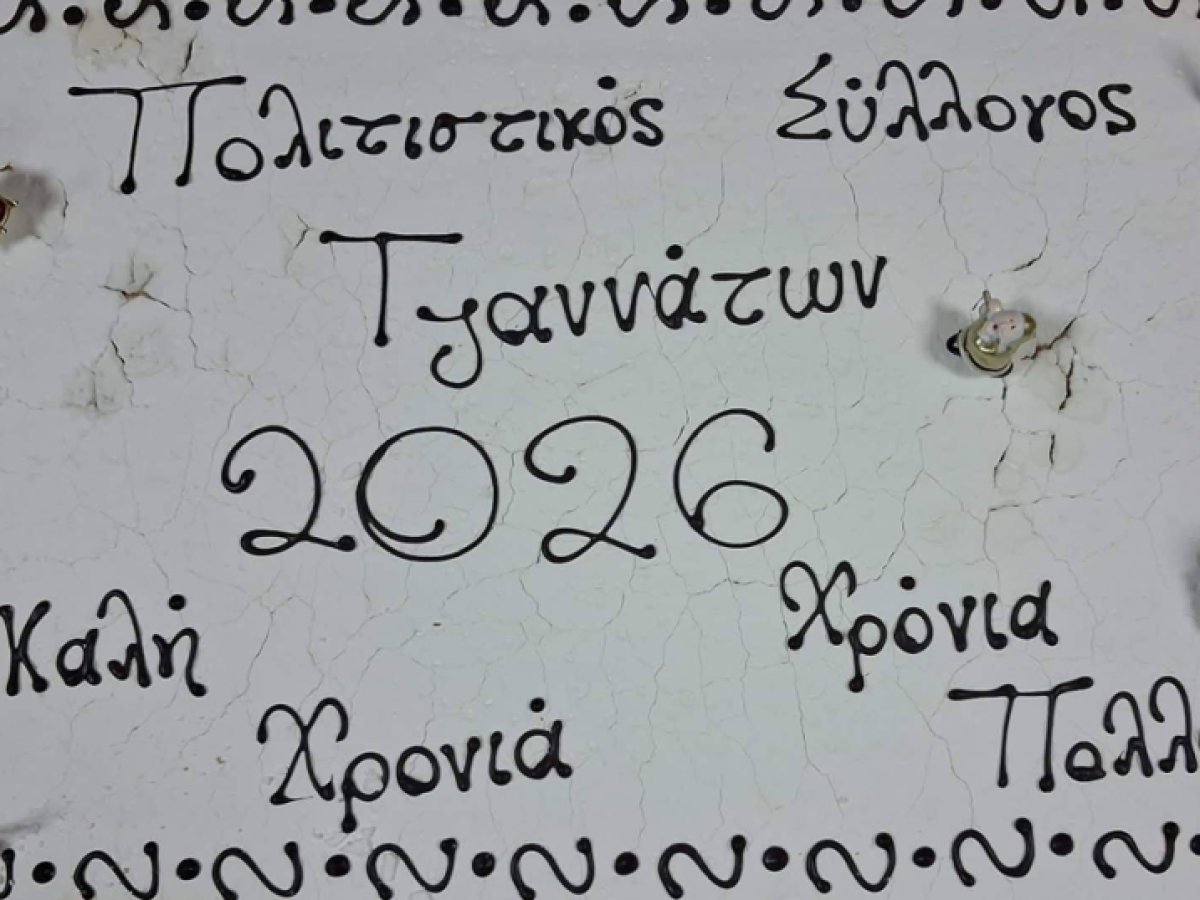 Πολιτιστικός Σύλλογος
Τζαννάτων
2026
Καλή
Χρονιά
Χρόνια
Πολλ